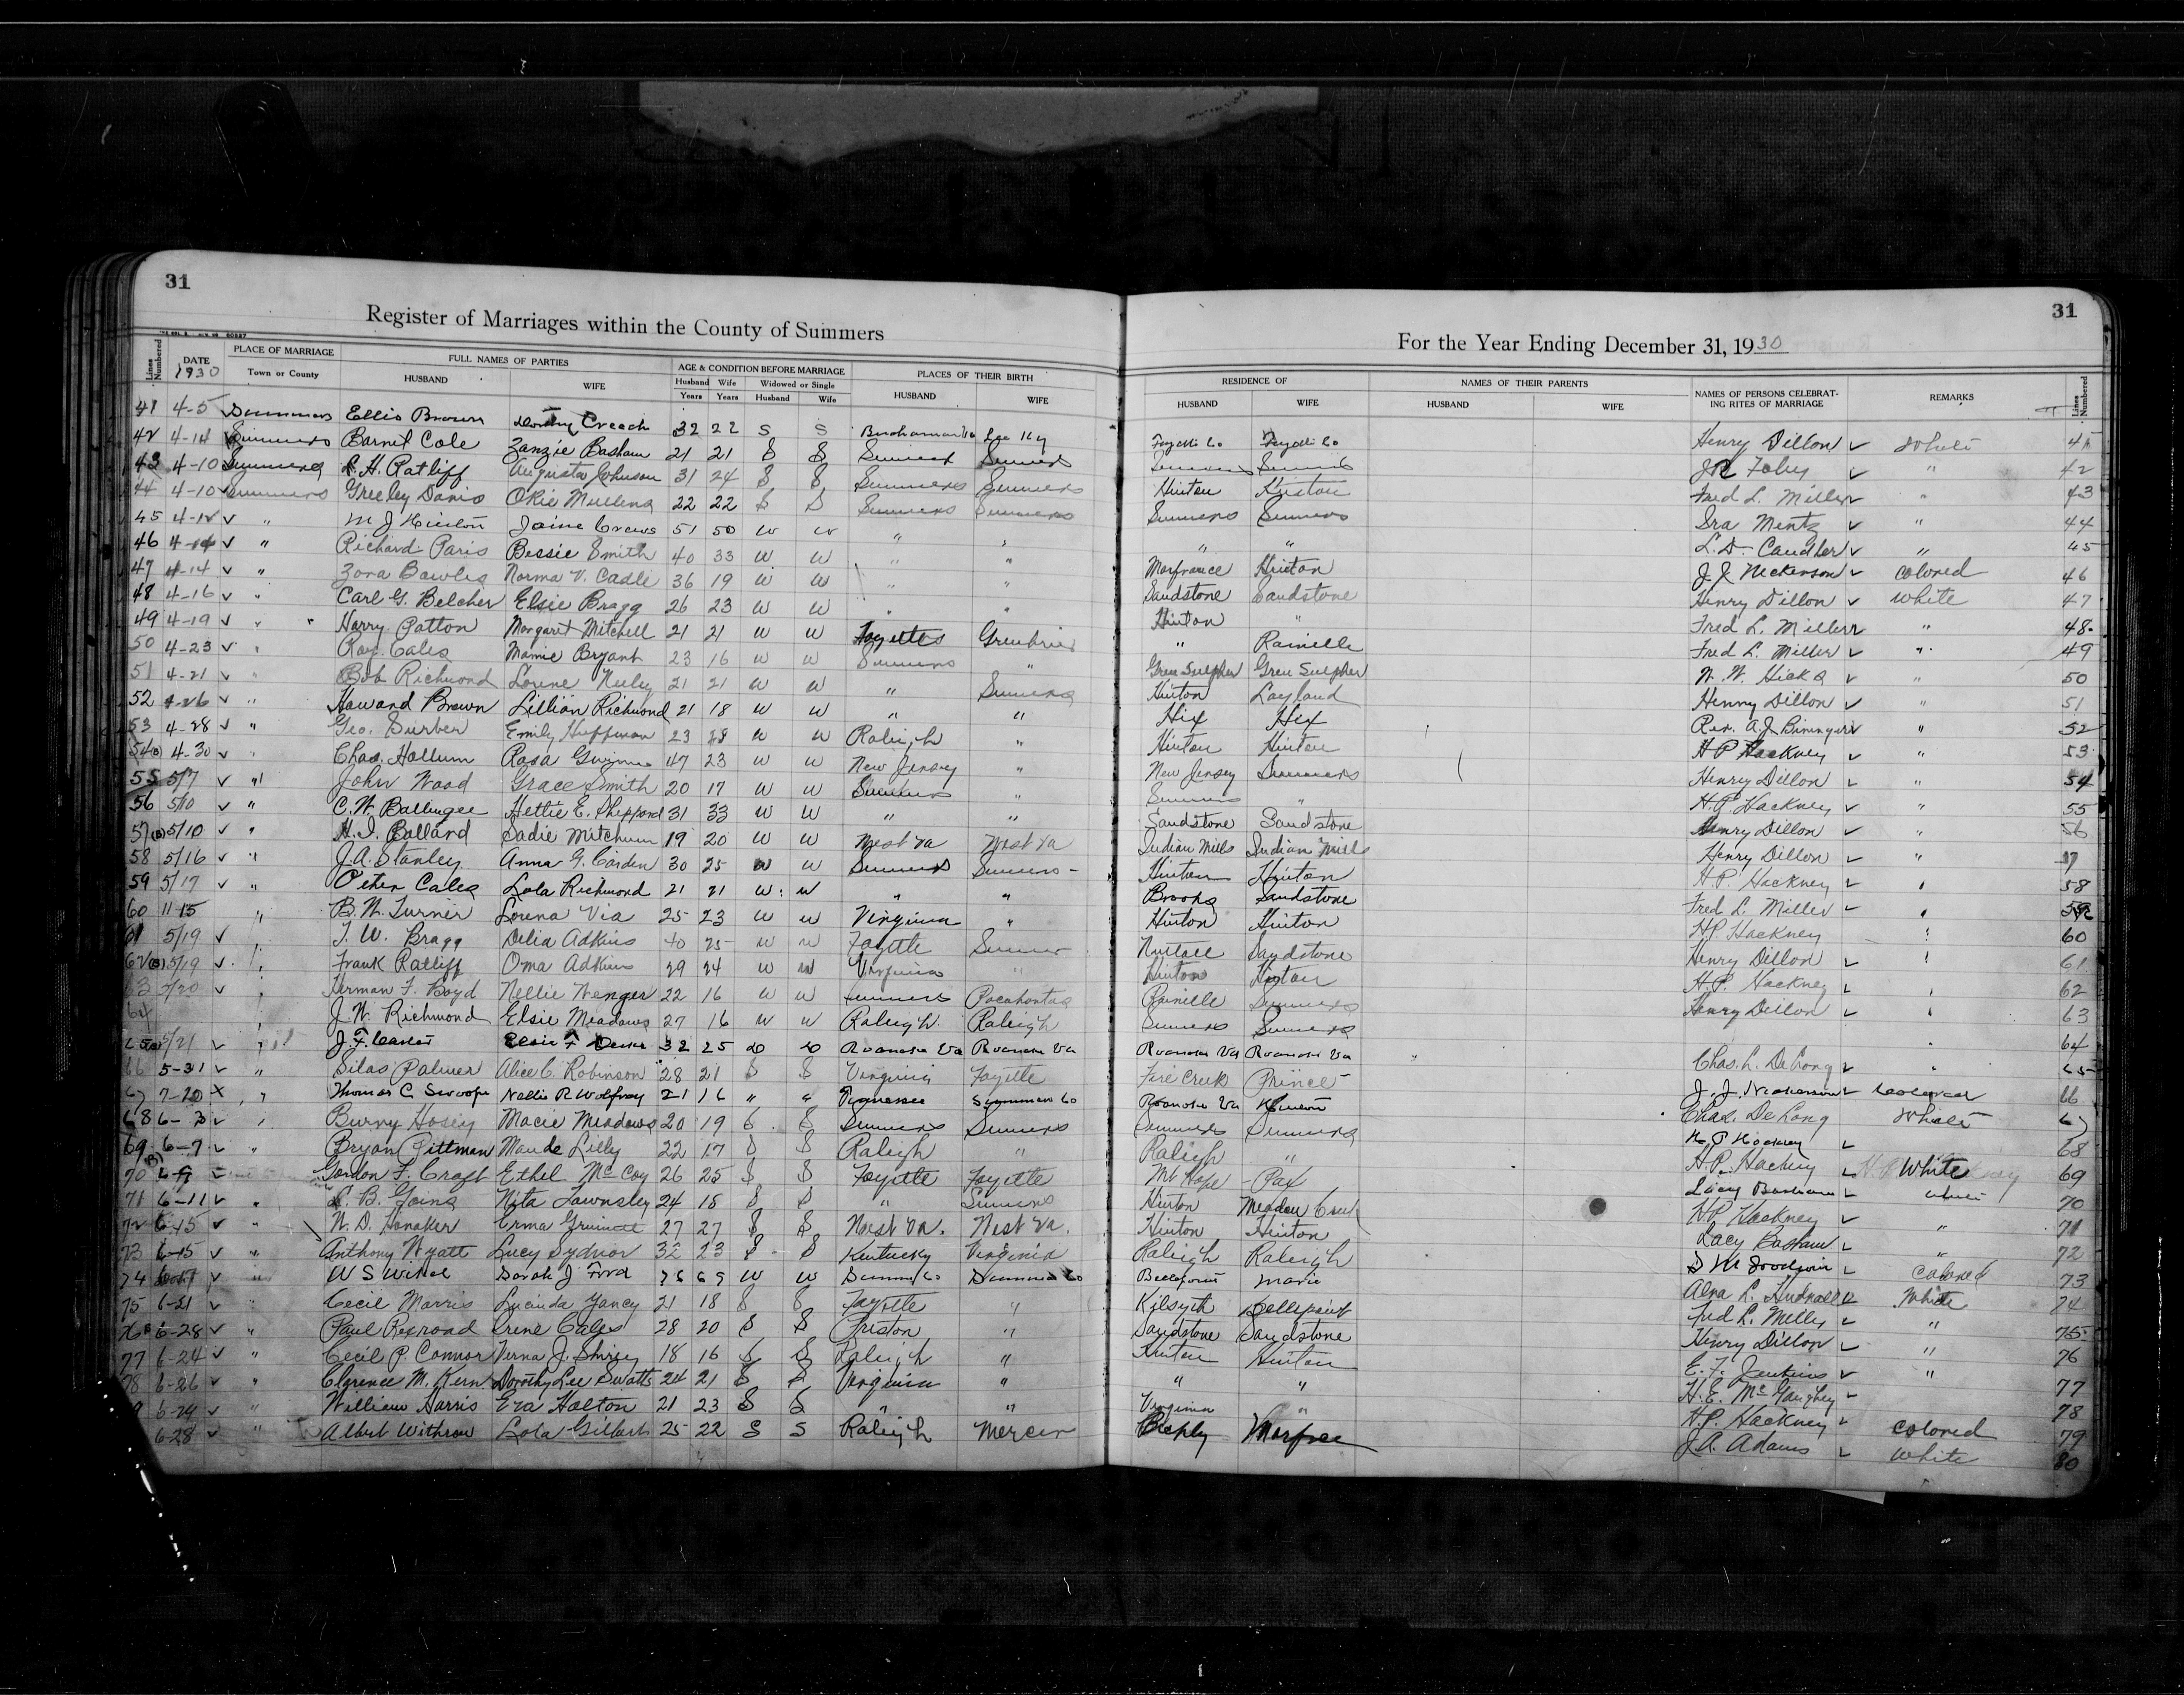 31
Register of Marriages within the County of Summers
Lines Numbered DATE 1930 PLACE OF MARRIAGE Town or County FULL NAMES OF PARTIES HUSBAND WIFE AGE & CONDITION BEFORE MARRIAGE Husband Years Wife Years Widowed or Single Husband Wife PLACES OF THEIR BIRTH HUSBAND WIFE
41 4-5 Summers Ellis Brown Creech 32 22 S S
42 4-14 Summers Barnet Cole Zanzie Basham 21 21 S S Summers Summers
43 4-10 Summers Ratliff Augusta Johnson 31 24 S S Summers Summers
44 4-10 Summers Greeley Davis Okie Mullens 22 22 S S Summers Summers
45 4-12 " M J Hinton Crews 51 50 W W "
46 4-14 " Richard Paris Bessie Smith 40 33 W W " "
47 4-14 " Zora Bowles Norma V. Cadle 36 19 W W " "
48 4-16 " Carl G. Belcher Elsie Bragg 26 23 W W " "
49 4-19 " Harry Patton Margaret Mitchell 21 21 W W Fayette Greenbrier
50 4-23 " Ray Cales Mamie Bryant 23 16 W W Summers "
51 4-21 " Bob Richmond Lorene 21 21 W W " Summers
52 4-26 " Howard Brown Lillian Richmond 21 18 W W " "
53 4-28 " Geo. Surber Emily Huffman 23 W W Raleigh "
54 4-30 " Chas. Hallum Rosa Gwinn 47 23 W W New Jersey "
55 5/7 " John Wood Grace Smith 20 17 W W Summers "
56 5/10 " C. W. Ballengee Hettie E. Sheppard 31 33 W W " "
57 5/10 " Ballard Sadie Mitchum 19 20 W W West Va West Va
58 5/16 " J. A. Stanley Anna G. Carden 30 25 W W Summers Summers
59 5/17 " Cales Lola Richmond 21 21 W W " "
60 11-15 " B. W. Turner Lorena Via 25 23 W W Virginia "
61 5/19 " Bragg Delia Adkins 40 25 W W Fayette Summer
62 5/19 " Frank Ratliff Oma Adkins 29 24 W W Virginia "
63 5/20 " Herman F. Boyd Nellie Wenger 22 16 W W Summers Pocahontas
64 " J. W. Richmond Elsie Meadows 27 16 W W Raleigh Raleigh
65 5/21 " J. F. 32 25 Roanoke Va Roanoke Va
66 5-31 " Silas Palmer Alice C. Robinson 28 21 S S Virginia Fayette
67 7-20 x " Thomas C Swoope Nellie R Wolfrey 21 16 " " Tennessee Summers Co
68 6-3 " Burny Hosey Macie Meadows 20 19 S S Summers Summers
69 6-7 " Bryan Pittman Maude Lilly 22 17 S S Raleigh "
70 Gordon F. Craft Ethel McCoy 26 25 S S Fayette Fayette
71 6-11 " B. Goins Nita Lawnsley 24 18 S S " Summers
72 6-15 " W. D. Honaker Erma 27 27 S S West Va. West Va.
73 6-15 " Anthony Wyatt Lucy Sydnor 32 23 S S Kentucky Virginia
74 W S Sarah J Ford W W Summers Co Summers Co
75 6-21 " Cecil Morris Lucinda Yancy 21 18 S S Fayette "
76 6-28 " Paul Rexroad Irene Cales 28 20 S S Preston "
77 6-24 " Cecil P. Connor Verna J. Shirey 18 16 S S Raleigh "
78 6-26 " Clarence M. Kern Dorothy Lee Swatts 24 21 S S Virginia "
9 6-29 " William Harris Eva Holton 21 23 S S " "
6-28 " Albert Withrow Lola Gilbert 25 22 S S Raleigh Mercer
31
For the Year Ending December 31, 1930
RESIDENCE OF HUSBAND WIFE NAMES OF THEIR PARENTS HUSBAND WIFE NAMES OF PERSONS CELEBRATING RITES OF MARRIAGE REMARKS Lines Numbered
Fayette Co Fayette Co Henry Dillon White 41
Summers Summers " 42
Hinton Hinton Fred L. Miller " 43
Summers Summers Ira Mentz " 44
" " L. D. Caudler " 45
Marfrance Hinton J. J. Nickerson colored 46
Sandstone Sandstone Henry Dillon White 47
Hinton " Fred L. Miller " 48
" Rainelle Fred L. Miller " 49
Green Sulpher Green Sulpher N. W. Hicks " 50
Hinton Layland Henry Dillon " 51
Hix Hix Rev. A. J. " 52
Hinton Hinton H P Hackney " 53
New Jersey Summers Henry Dillon " 54
Summers " H. P. Hackney " 55
Sandstone Sandstone Henry Dillon " 56
Indian Mills Indian Mills Henry Dillon "
Hinton Hinton H. P. Hackney " 58
Brooks Sandstone Fred L. Miller "
Hinton Hinton H. P. Hackney " 60
Sandstone Henry Dillon " 61
Hinton Hinton H. P. Hackney " 62
Rainelle Summers Henry Dillon " 63
Summers Summers " 64
Roanoke Va Roanoke Va Chas. L. DeLong " 65
Fire Creek Prince J. J. Nickerson Colored 66
Roanoke Va Hinton Chas. DeLong White 67
Summers Summers H P Hackney 68
Raleigh " H. P. Hackney White 69
Mt Hope Pax Lacy Basham White 70
Hinton Meadow Creek H P Hackney " 71
Hinton Hinton Lacy Basham " 72
Raleigh Raleigh S M Goodwin Colored 73
Bellepoint Marie Alva L. White 74
Kilsyth Bellepoint Fred L. Miller " 75
Sandstone Sandstone Henry Dillon " 76
Hinton Hinton E. F. Jenkins " 77
" " H. E. McGaughey 78
Virginia " H. P. Hackney Colored 79
J. A. Adams White 80